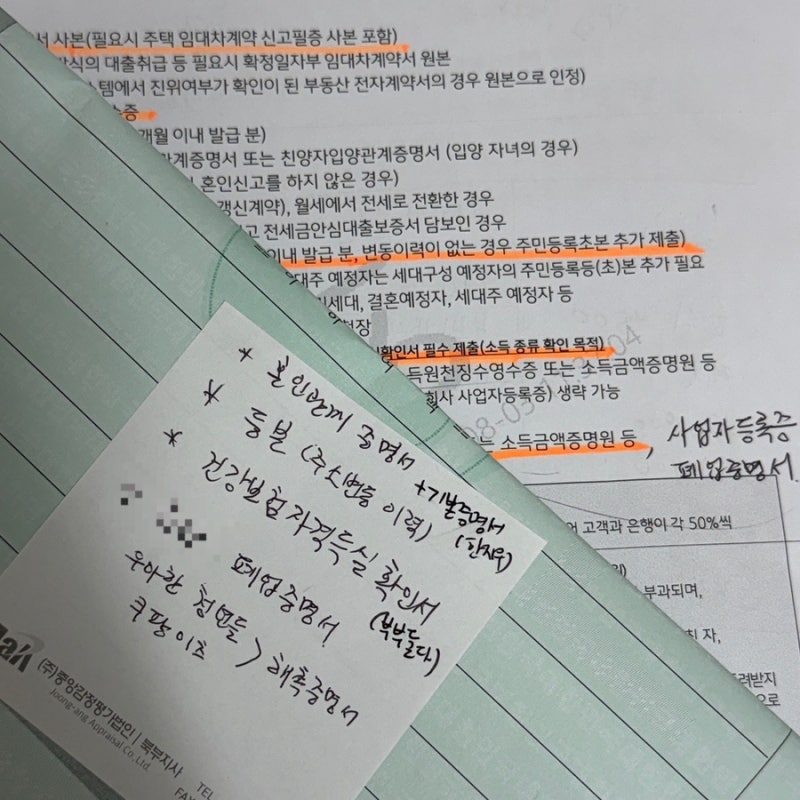 서 사본(필요시 주택 임대차계약 신고필증 사본 포함)
방식의 대출취급 등 필요시 확정일자부 임대차계약서 원본
스템에서 진위여부가 확인이 된 부동산 전자계약서의 경우 원본으로 인정)
수증
개월 이내 발급 분)
관계증명서 또는 친양자입양관계증명서 (입양 자녀의 경우)
혼인신고를 하지 않은 경우)
갱신계약), 월세에서 전세로 전환한 경우
고 전세금안심대출보증서 담보인 경우
이내 발급 분, 변동이력이 없는 경우 주민등록초본 추가 제출)
대주 예정자는 세대구성 예정자의 주민등록등(초)본 추가 필요
세대, 결혼예정자, 세대주 예정자 등
확인서 필수 제출(소득 종류 확인 목적)
득원천징수영수증 또는 소득금액증명원 등
회사 사업자등록증) 생략 가능
는 소득금액증명원 등, 사업자등록증
폐업증명서
고객과 은행이 각 50%씩
부과되며,
* 혼인관계 증명서 + 기본증명서
* 등본 (주소변동 이력)
* 건강보험자격득실 확인서
(부부둘다)
폐업증명서
우아한 청년들 > 해촉증명서
쿠팡이츠
(주)중앙감정평가법인 | 북부지사
Joong-ang Appraisal Co., Ltd.
TEL
FAX